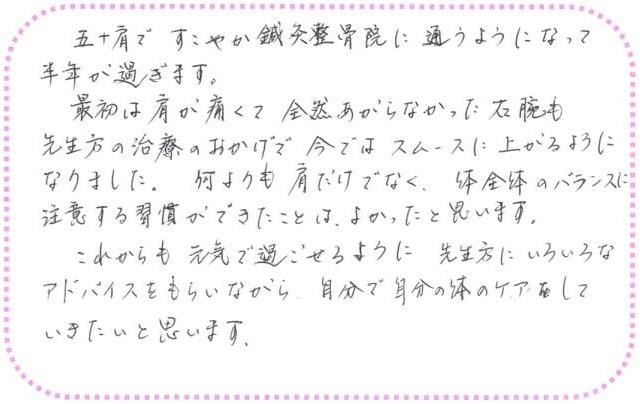 五十肩で すこやか鍼灸整骨院に 通うようになって
半年が過ぎます。
最初は肩が痛くて 全然あがらなかった右腕も
先生方の治療のおかげで 今では スムースに上がるように
なりました。 何よりも 肩だけでなく、体全体のバランスに
注意する習慣ができたことは、よかったと思います。
これからも 元気で過ごせるように 先生方にいろいろな
アドバイスをもらいながら、自分で自分の体のケアをして
いきたいと思います。